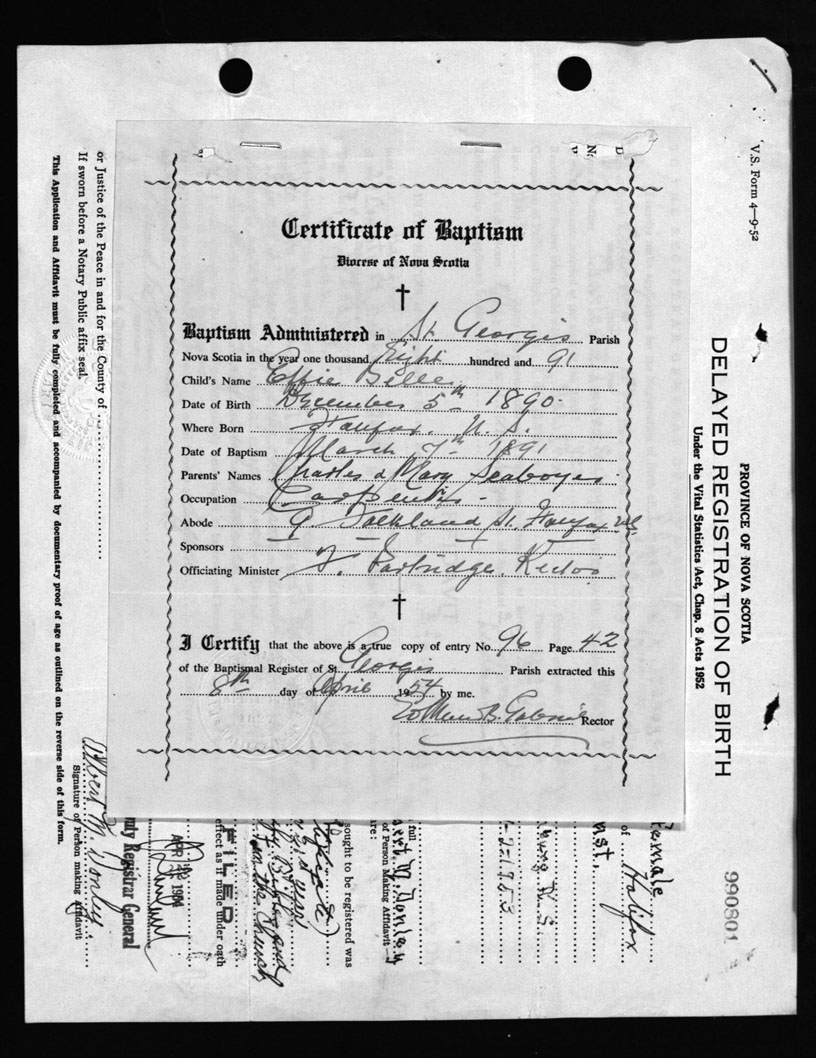 Certificate of Baptism
Diocese of Nova Scotia
Baptism Administered in St. Georges Parish
Nova Scotia in the year one thousand Eight hundred and 91
Child's Name Effie Belle
Date of Birth December 5th 1890
Where Born Halifax, N.S.
Date of Baptism March 7th 1891
Parents' Names Charles & Mary Seaboyer
Occupation Carpenter
Abode 9 Falkland St. Halifax
Sponsors
Officiating Minister F. Partridge Rector
I Certify that the above is a true copy of entry No. 96 Page 42
of the Baptismal Register of St. Georges Parish extracted this
8th day of April 1954 by me.
Rector
V.S. Form 4—9-52
PROVINCE OF NOVA SCOTIA
DELAYED REGISTRATION OF BIRTH
Under the Vital Statistics Act, Chap. 8 Acts 1952
990801
Female
of Halifax
-2-1953
full
of Person Making Affidavit
are:
sought to be registered was
FILED
effect as if made under oath
Registrar General
APR
Signature of Person making Affidavit
or Justice of the Peace in and for the County of
If sworn before a Notary Public affix seal.
This Application and Affidavit must be fully completed and accompanied by documentary proof of age as outlined on the reverse side of this form.